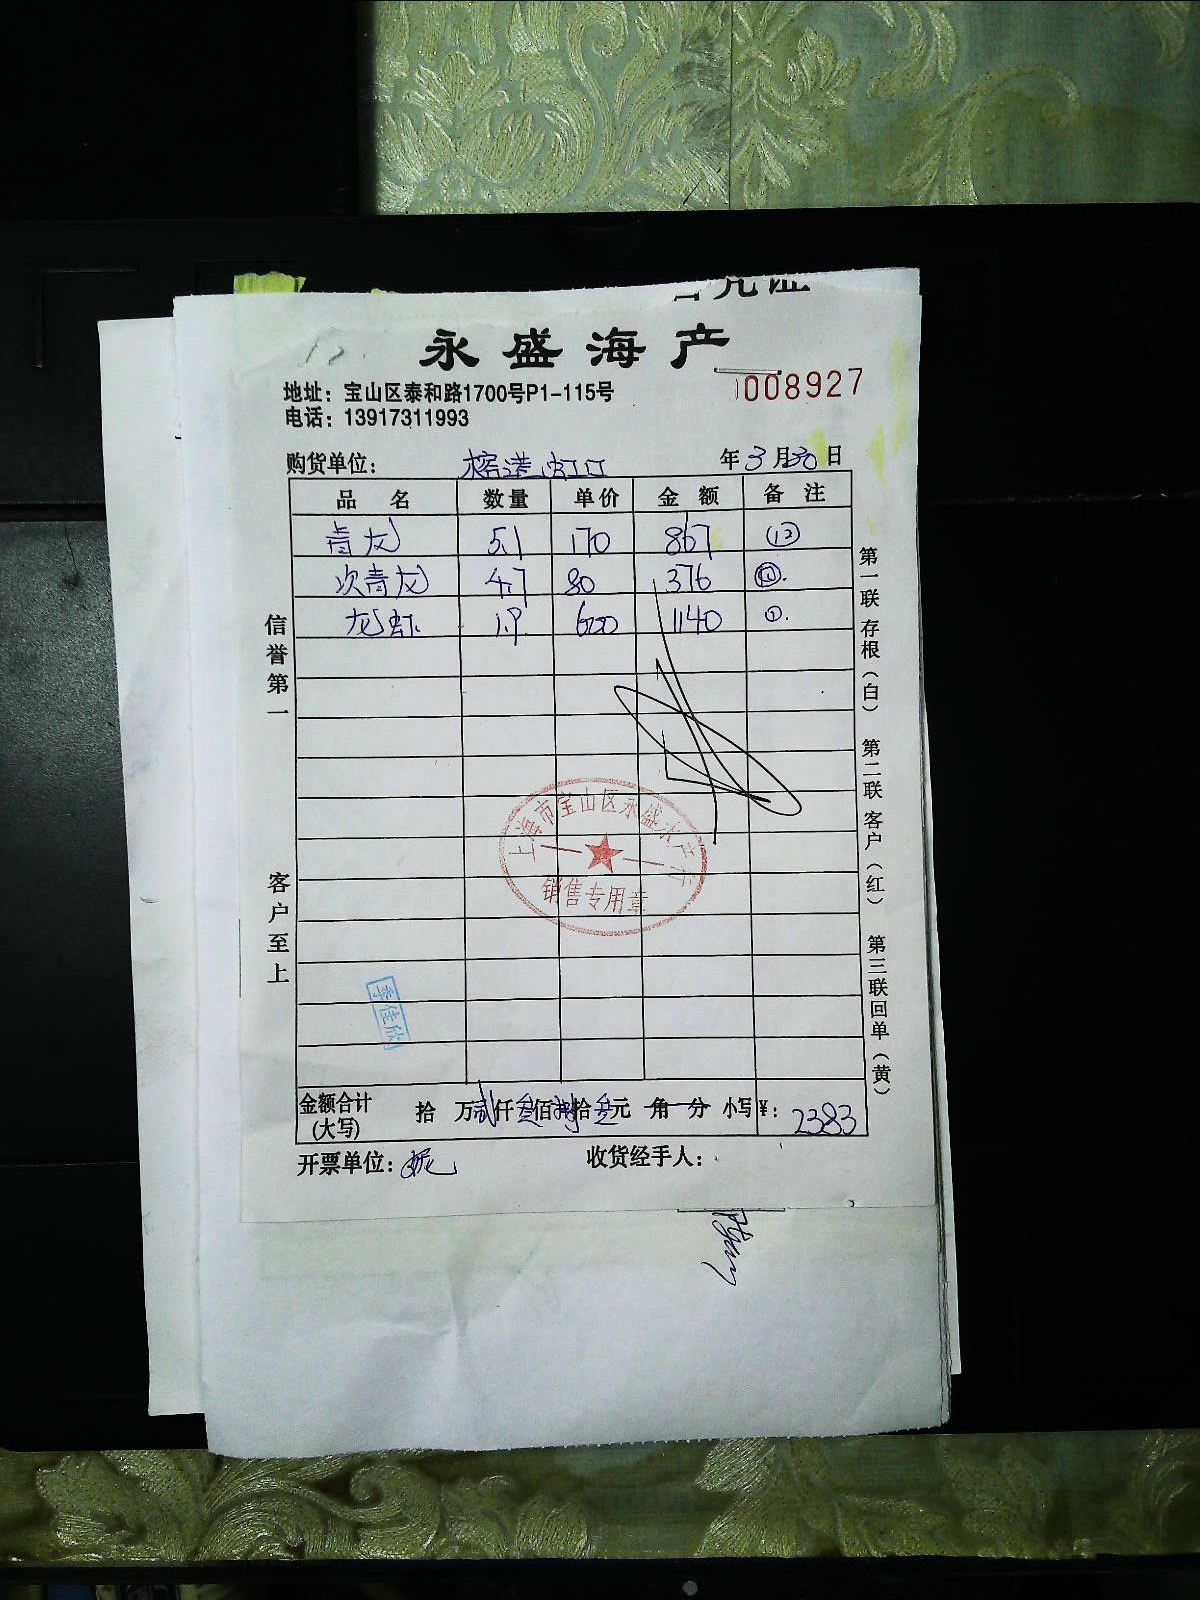 永盛海产
地址：宝山区泰和路1700号P1-115号
电话：13917311993
008927
购货单位：榕港虹口 年3月30日
品名 数量 单价 金额 备注
青龙 5.1 170 867 ⑫
次青龙 4.7 80 376
龙虾 1.9 600 1140 ①.
信誉第一
客户至上
第一联存根（白） 第二联客户（红） 第三联回单（黄）
上海市宝山区永盛水产行
销售专用章
李佳欣
金额合计(大写) 拾 万贰仟叁佰捌拾叁元 角 分 小写¥：2383
开票单位：妮 收货经手人：